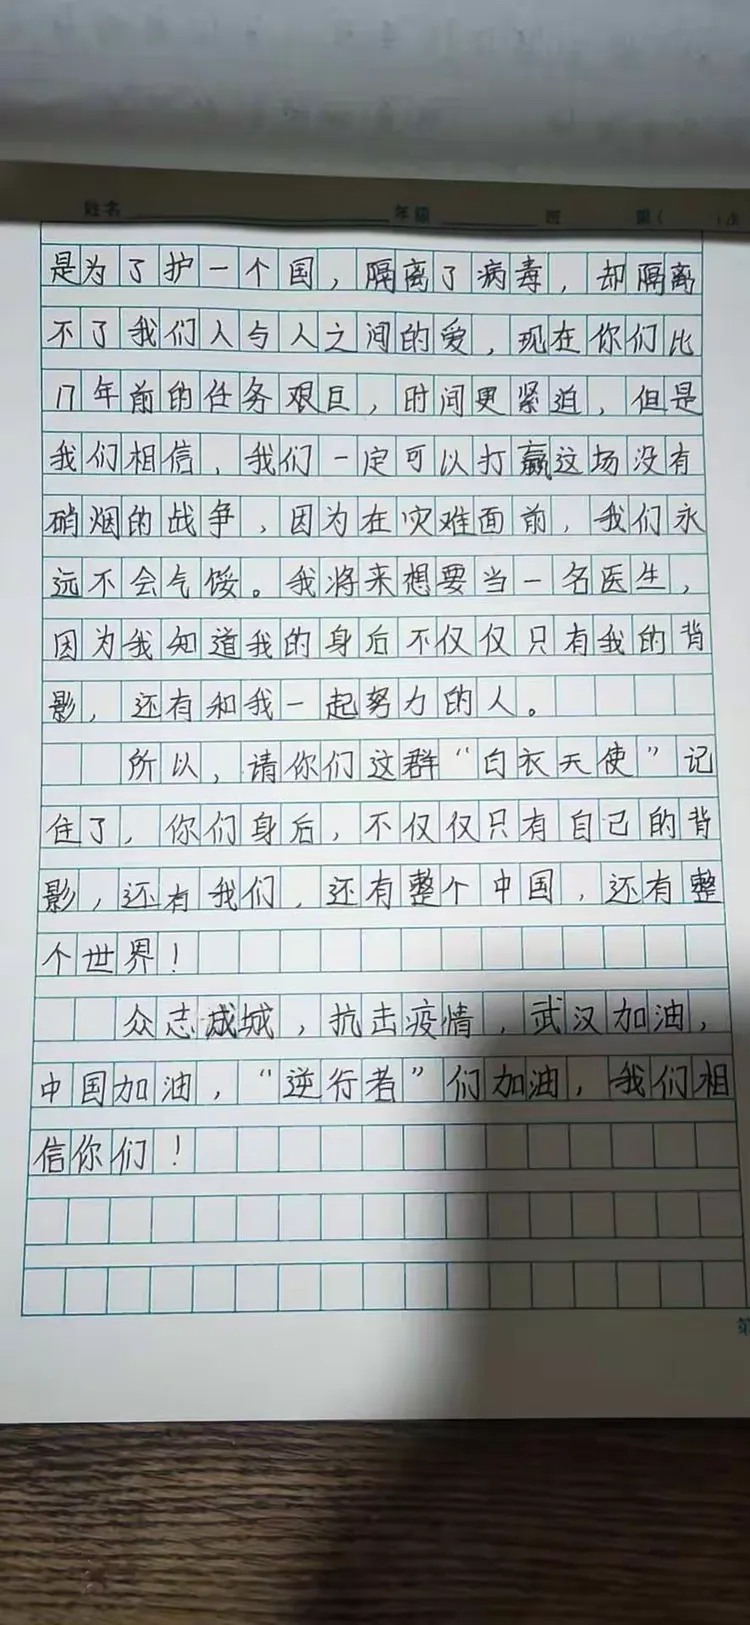 姓名 年级 班 第(
是为了护一个国，隔离了病毒，却隔离
不了我们人与人之间的爱，现在你们比
17年前的任务艰巨，时间更紧迫，但是
我们相信，我们一定可以打赢这场没有
硝烟的战争，因为在灾难面前，我们永
远不会气馁。我将来想要当一名医生，
因为我知道我的身后不仅仅只有我的背
影，还有和我一起努力的人。
所以，请你们这群“白衣天使”记
住了，你们身后，不仅仅只有自己的背
影，还有我们，还有整个中国，还有整
个世界！
众志成城，抗击疫情，武汉加油，
中国加油，“逆行者”们加油，我们相
信你们！
第